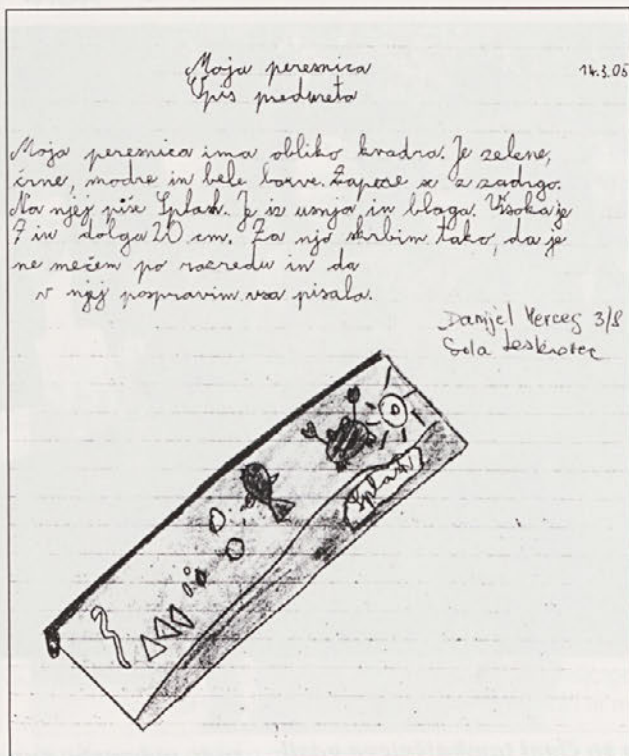 Moja peresnica
14.3.05
Opis predmeta
Moja peresnica ima obliko kvadra. Je zelene,
črne, modre in bele barve. Zapere se z zadrgo.
Na njej piše Splash. Je iz usnja in blaga. Visoka je
7 in dolga 20 cm. Za njo skrbim tako, da je
ne mečem po razredu in da
v njej pospravim vsa pisala.
Danijel Herceg 3/8
Šola Leskovec
Splash